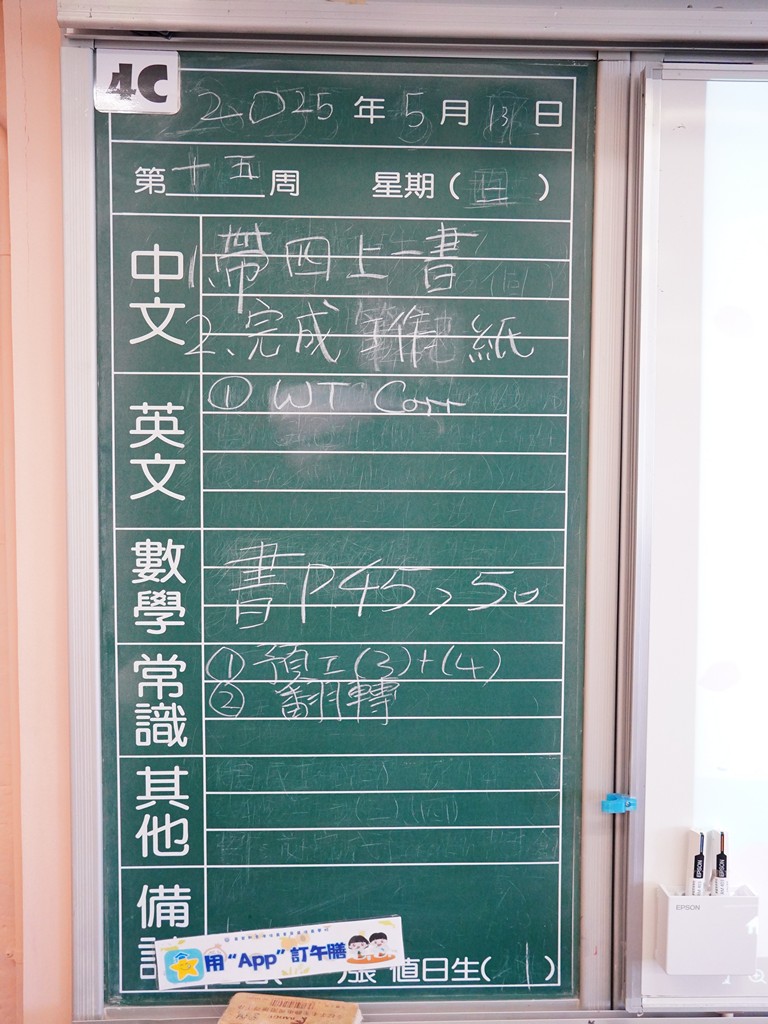 4C
2025年5月13日
第十五周 星期( )
中文
1.帶四上一書
2.完成 紙
英文
① WT Corr
數學
書P45,50
常識
①預工(3)+(4)
②翻轉
其他
備
用“App”訂午膳
張 值日生(1)
EPSON
EPSON
EPSON